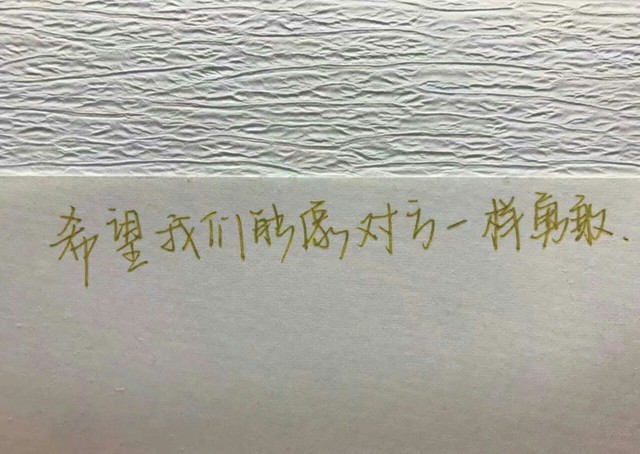 希望我们能像对方一样勇敢.